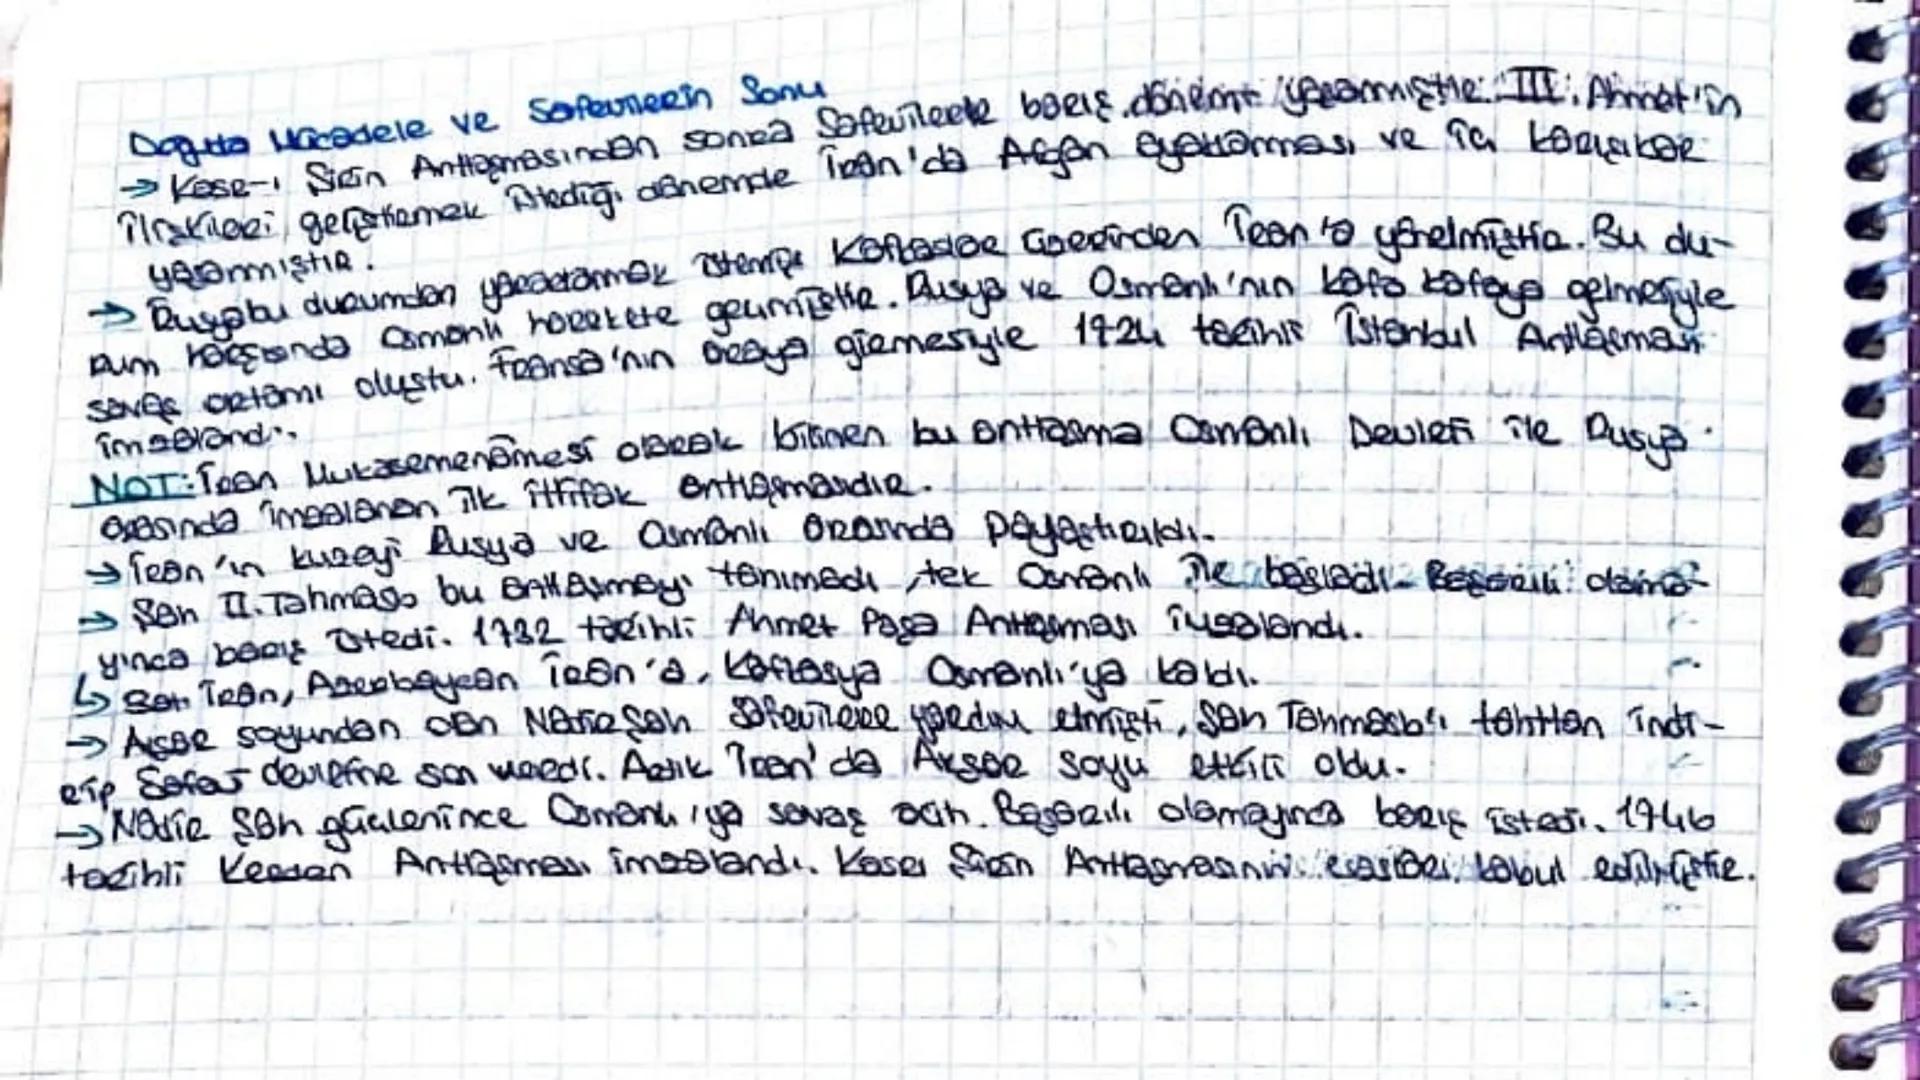 Doğuda Mücadele ve Safevilerin Sonu
→ Kasr-ı Şirin Antlaşmasından sonra Safevilerle barış dönemi yaşanmıştır. III. Ahmet'in
ilişkileri geliştirmek istediği dönemde İran'da Afgan ayaklanması ve iç karışıklar
yaşanmıştır.
→ Rusya bu durumdan yararlanmak istemiş Kafkaslar üzerinden İran'a yönelmiştir. Bu du-
rum karşısında Osmanlı harekete geçmiştir. Rusya ve Osmanlı'nın kafa kafaya gelmesiyle
savaş ortamı oluştu. Fransa'nın araya girmesiyle 1724 tarihli İstanbul Antlaşması
imzalandı.
NOT: İran Mukasemenamesi olarak bilinen bu antlaşma Osmanlı Devleti ile Rusya
arasında imzalanan ilk ittifak antlaşmasıdır.
→ İran'ın kuzeyi Rusya ve Osmanlı arasında paylaştırıldı.
→ Şah II. Tahmasb bu antlaşmayı tanımadı, tek Osmanlı ile başladı. Başarılı olama-
yınca barış istedi. 1732 tarihli Ahmet Paşa Antlaşması imzalandı.
↳ Batı İran, Azerbaycan İran'a, Kafkasya Osmanlı'ya kaldı.
→ Avşar soyundan olan Nadir Şah Safevilere yardım etmişti, Şah Tahmasb'ı tahttan indi-
rip Safevi devletine son verdi. Artık İran'da Avşar soyu etkili oldu.
→ Nadir Şah güçlenince Osmanlı'ya savaş açtı. Başarılı olamayınca barış istedi. 1746
tarihli Kerden Antlaşması imzalandı. Kasrı Şirin Antlaşmasının esasları kabul edilmiştir.